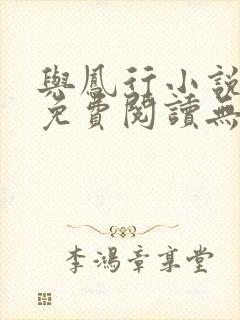 與鳳行小說
免費閱讀無
李鴻章享堂